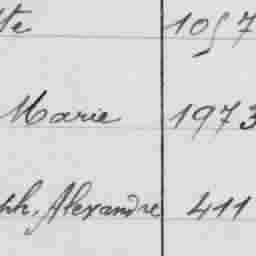 te 1057
Marie 1973
ph, Alexandre 411